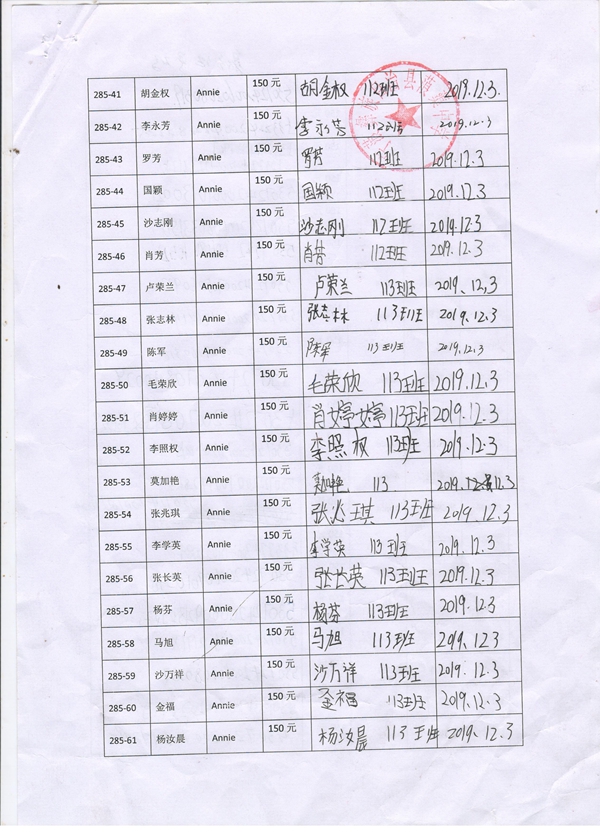 285-41 胡金权 Annie 150元 胡金权 112班 2019.12.3.
285-42 李永芳 Annie 150元 李永芳 112班 2019.12.3
285-43 罗芳 Annie 150元 罗芳 112班 2019.12.3
285-44 国颖 Annie 150元 国颖 112班 2019.12.3
285-45 沙志刚 Annie 150元 沙志刚 112班 2019.12.3
285-46 肖芳 Annie 150元 肖芳 112班 2019.12.3
285-47 卢荣兰 Annie 150元 卢荣兰 113班 2019、12,3
285-48 张志林 Annie 150元 张志林 113班 2019.12.3
285-49 陈军 Annie 150元 陈军 113班 2019.12.3
285-50 毛荣欣 Annie 150元 毛荣欣 113班 2019.12.3
285-51 肖婷婷 Annie 150元 肖婷婷 113班 2019.12.3
285-52 李照权 Annie 150元 李照权 113班 2019.12.3
285-53 莫加艳 Annie 150元 莫加艳 113 2019.12.3
285-54 张兆琪 Annie 150元 张兆琪 113班 2019.12.3
285-55 李学英 Annie 150元 李学英 113班 2019.12.3
285-56 张长英 Annie 150元 张长英 113班 2019.12.3
285-57 杨芬 Annie 150元 杨芬 113班 2019.12.3
285-58 马旭 Annie 150元 马旭 113班 2019.12.3
285-59 沙万祥 Annie 150元 沙万祥 113班 2019.12.3
285-60 金福 Annie 150元 金福 113班 2019.12.3
285-61 杨汝晨 Annie 150元 杨汝晨 113班 2019、12.3